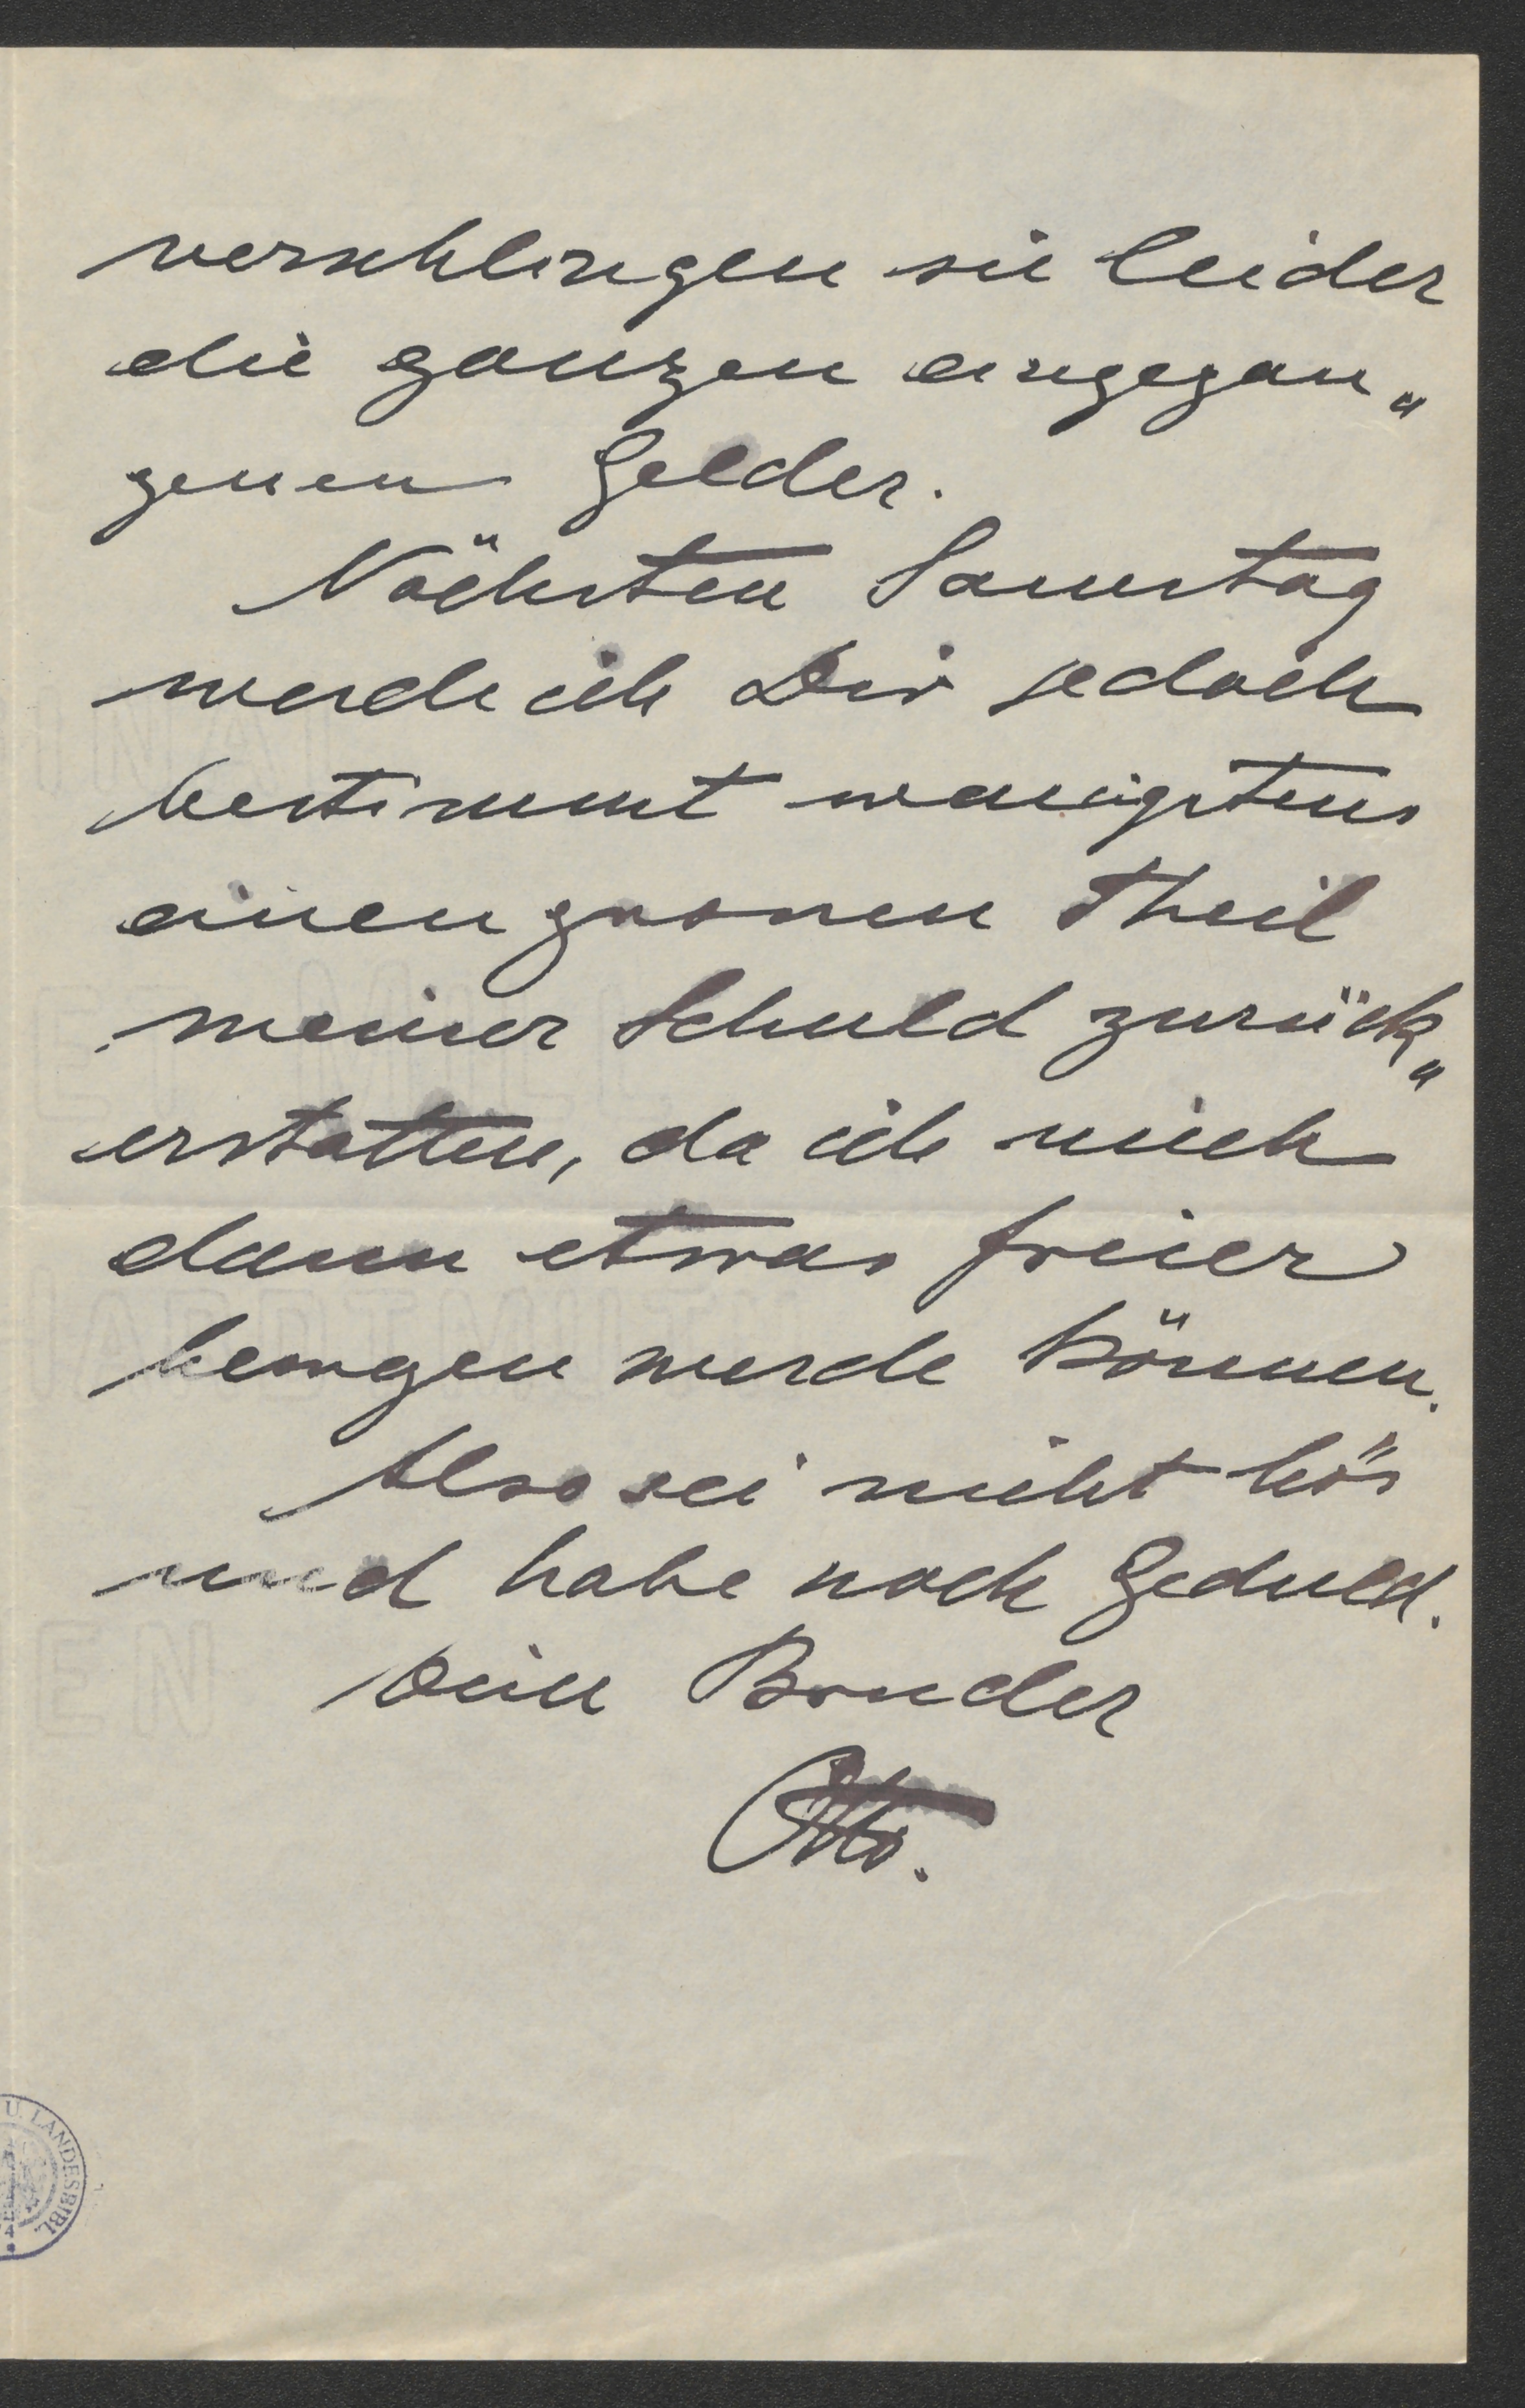 verschlingen sie leider
die ganzen eingegan„
genen Gelder.
Nächsten Samstag
werde ich Dir jedoch
bestimmt wenigstens
einen grossen Theil
meiner Schuld zurück„
erstatten, da ich mich
dann etwas freier
bewegen werde können.
Also sei nicht bös
und habe noch Geduld.
Dein Bruder
Otto.
U. LANDESBIBL.